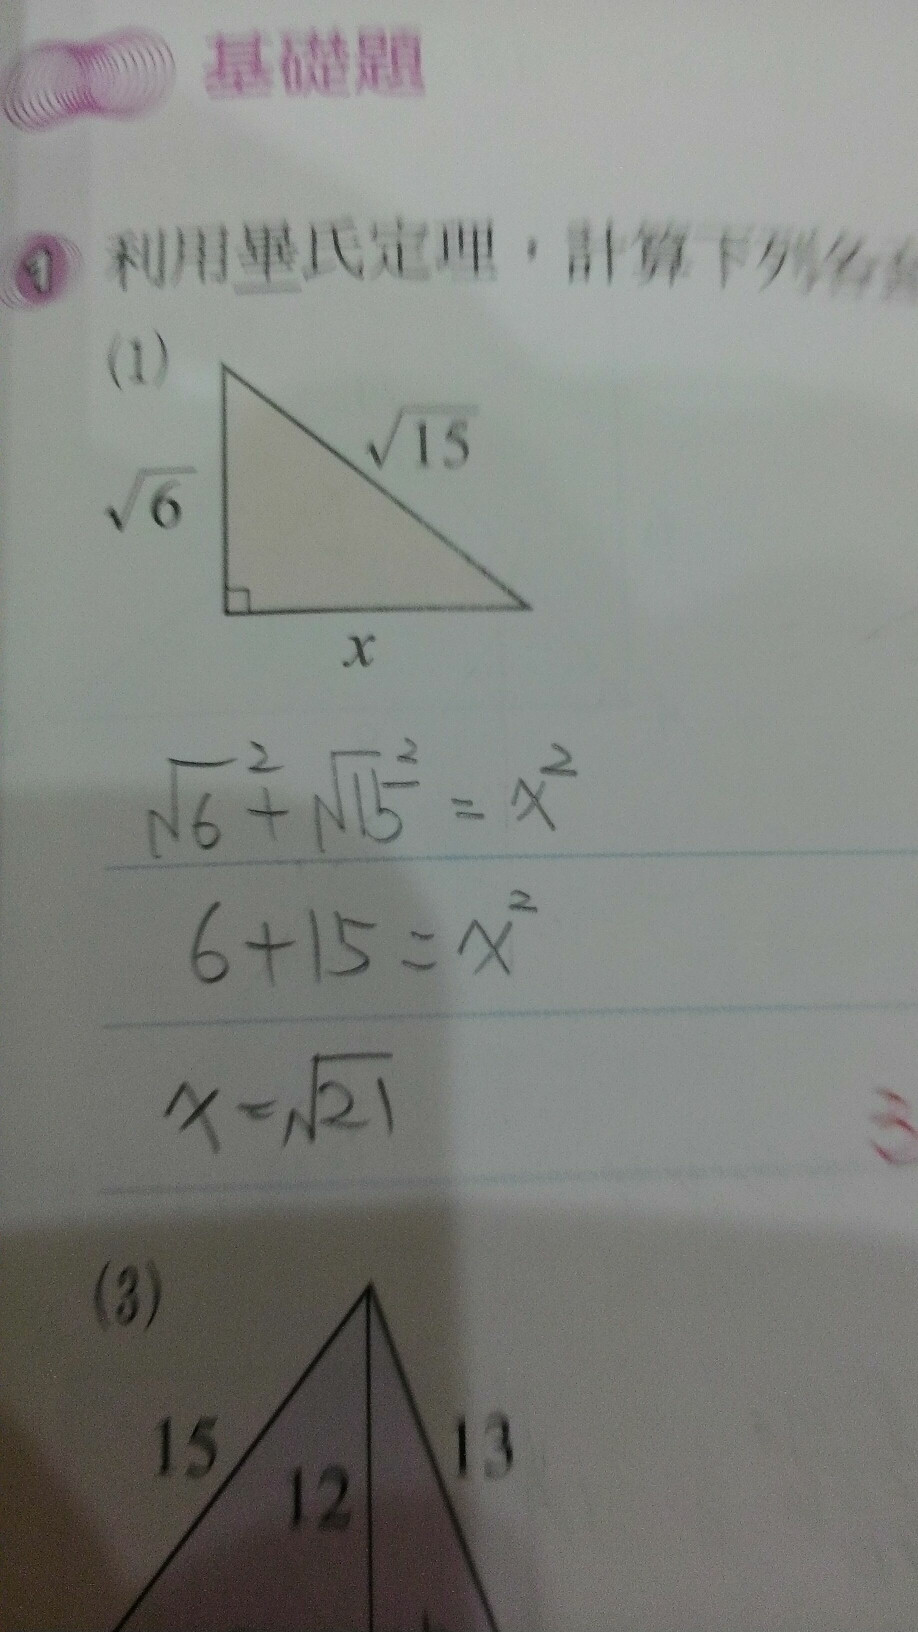 基礎題
1 利用畢氏定理，計算下列各
(1)
√15
√6
x
√6² + √15² = x²
6+15=x²
x=√21
3
(3)
15
13
12